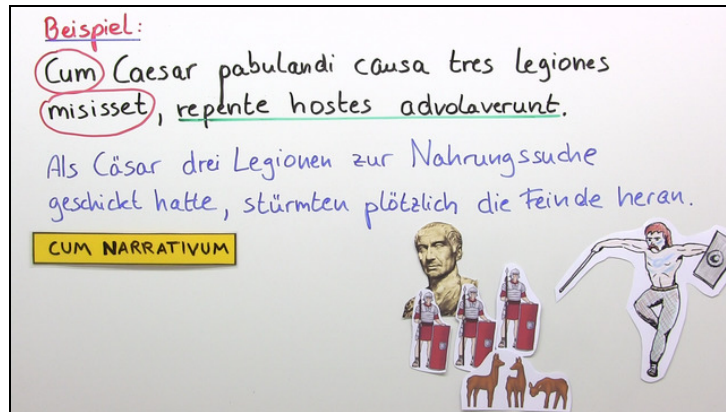 Beispiel:
Cum Caesar pabulandi causa tres legiones
misisset, repente hostes advolaverunt.
Als Cäsar drei Legionen zur Nahrungssuche
geschickt hatte, stürmten plötzlich die Feinde heran.
CUM NARRATIVUM